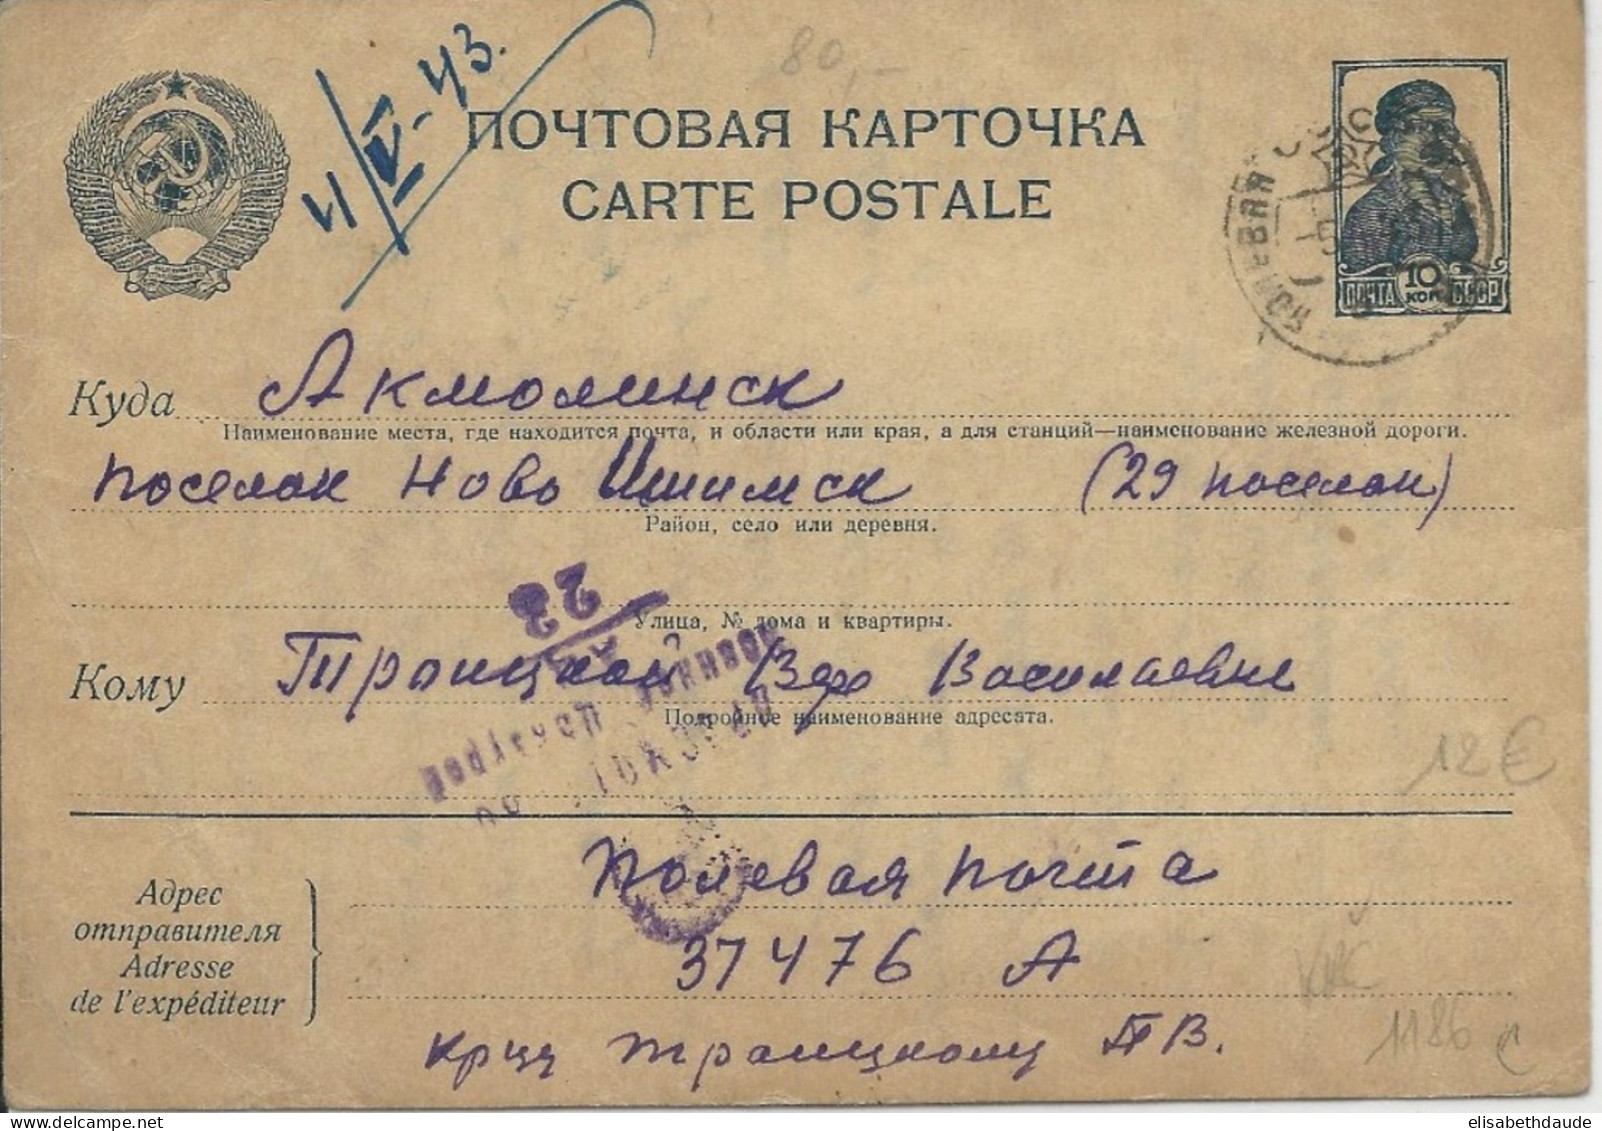 11/V-43.
80,-
ПОЧТОВАЯ КАРТОЧКА
CARTE POSTALE
ПОЧТА 10 КОП. СССР
Куда Акмолинск
Наименование места, где находится почта, и области или края, а для станций—наименование железной дороги.
поселок Ново Ишимск (29 поселок)
Район, село или деревня.
23
Улица, № дома и квартиры.
Кому Траицкой Вере Василиевне
Подробное наименование адресата.
12€
Адрес отправителя
Adresse de l'expéditeur
Полевая почта
37476 А
Траицкому П В.
1186
elisabethdaude